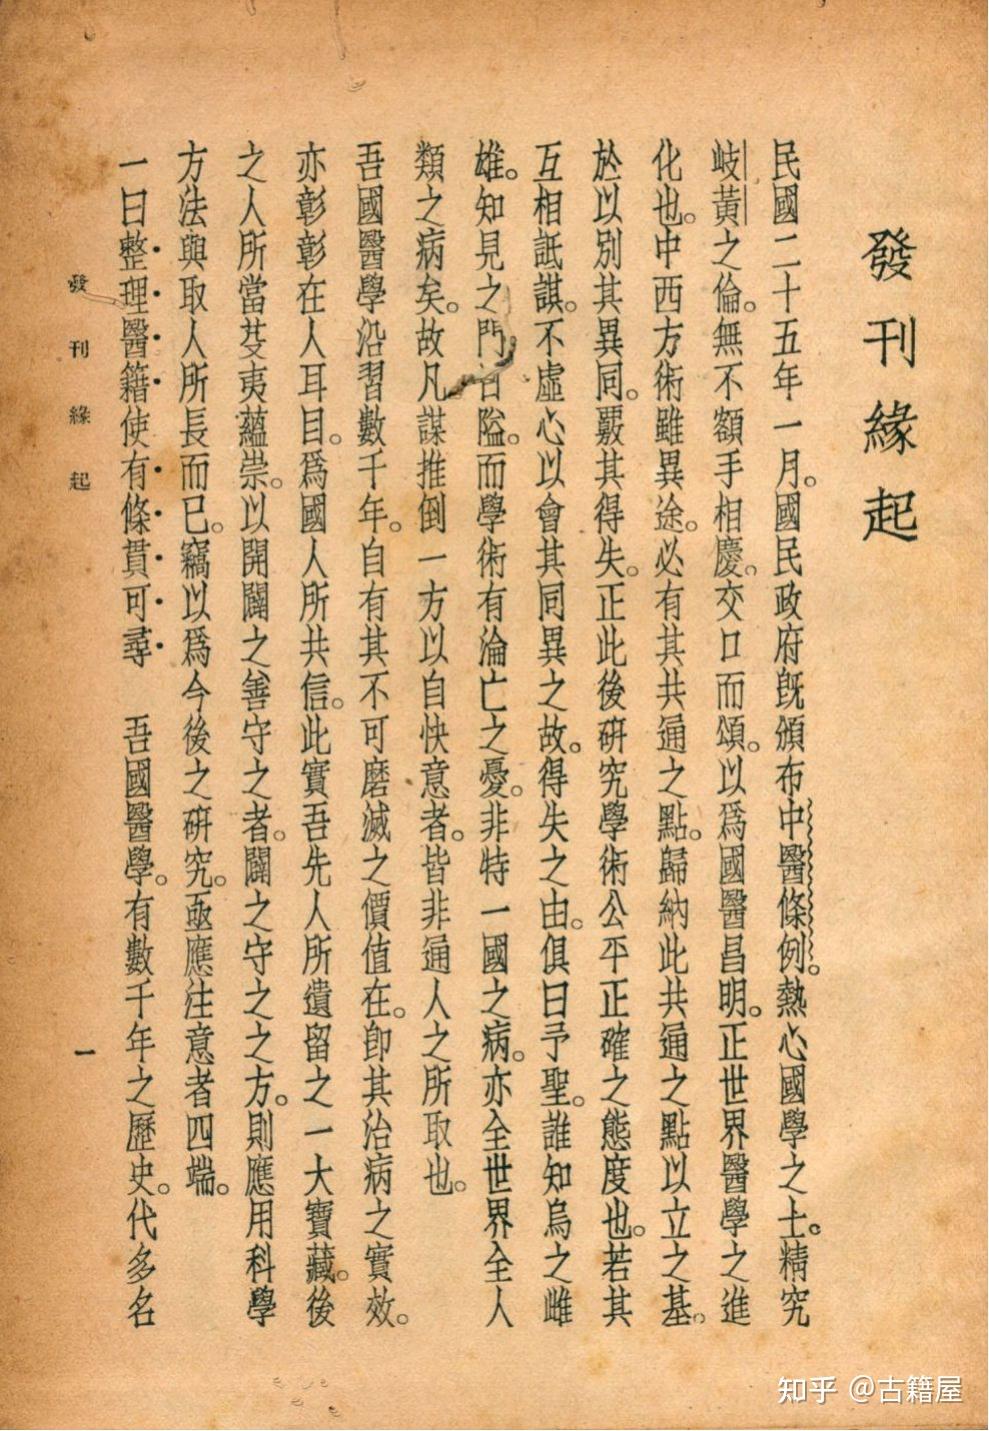 發刊緣起
民國二十五年一月。國民政府旣頒布中醫條例。熱心國學之士。精究
岐黃之倫。無不額手相慶。交口而頌。以爲國醫昌明。正世界醫學之進
化也。中西方術雖異途。必有其共通之點。歸納此共通之點以立之基。
於以別其異同。覈其得失。正此後研究學術公平正確之態度也。若其
互相詆諆。不虛心以會其同異之故。得失之由。俱曰予聖。誰知烏之雌
雄。知見之門隘。而學術有淪亡之憂。非特一國之病。亦全世界全人
類之病矣。故凡謀推倒一方以自快意者。皆非通人之所取也。
吾國醫學沿習數千年。自有其不可磨滅之價值在。卽其治病之實效。
亦彰彰在人耳目。爲國人所共信。此實吾先人所遺留之一大寶藏。後
之人所當芟夷蘊崇。以開闢之善守之者。闢之守之之方。則應用科學
方法與取人所長而已。竊以爲今後之研究。亟應注意者四端。
一曰整理醫籍使有條貫可尋　吾國醫學。有數千年之歷史。代多名
發刊緣起
一
知乎 @古籍屋